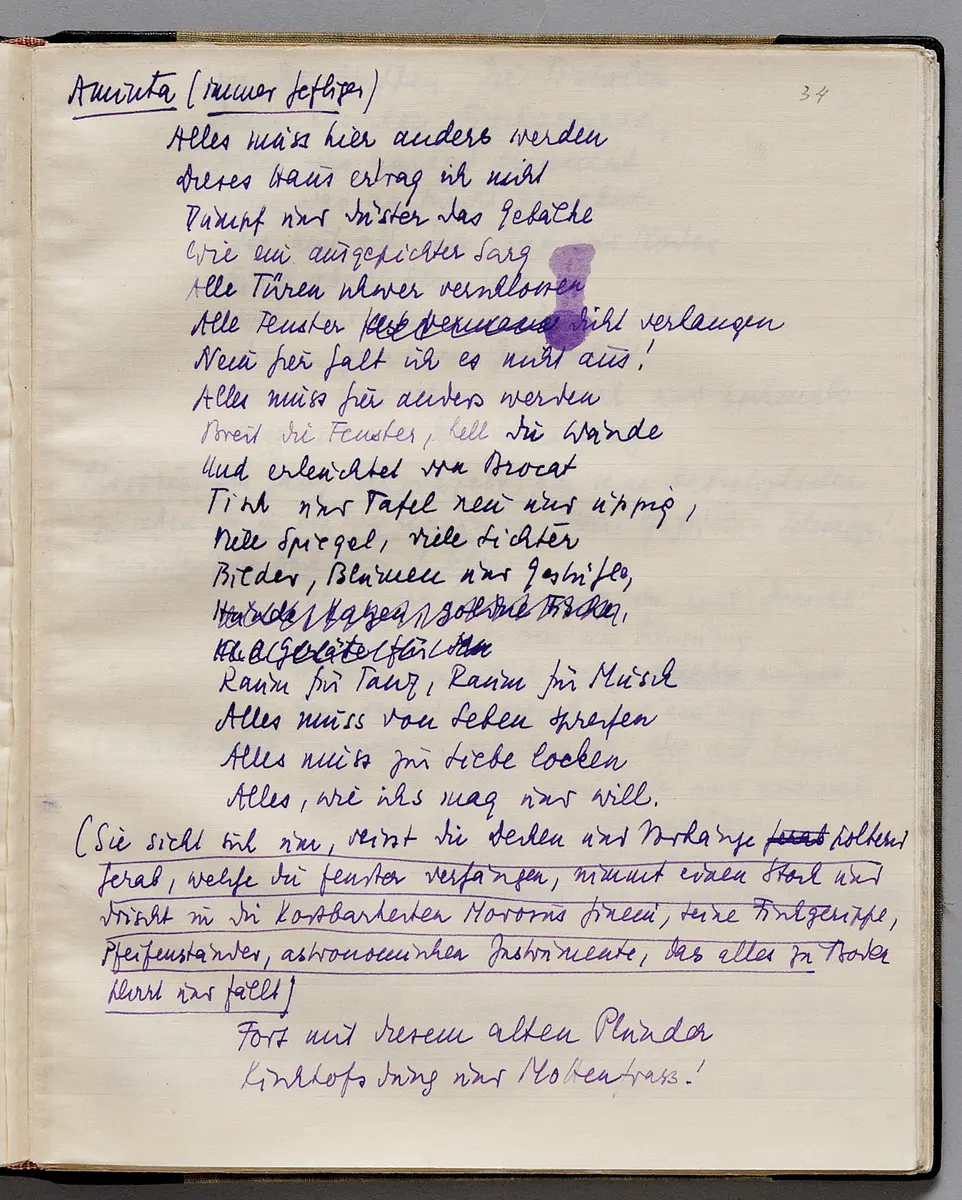 34
Aminta (immer heftiger)
Alles muss hier anders werden
Dieses Haus ertrag ich nicht
Dumpf und düster das Gebälke
Wie ein ausgepichter Sarg
Alle Türen schwer verschlossen
Alle Fenster dicht verhangen
Nein hier halt ich es nicht aus!
Alles muss hier anders werden
Breit die Fenster, hell die Wände
Und erleuchtet von Brocat
Tisch und Tafel neu und üppig,
Viele Spiegel, viele Lichter
Bilder, Blumen und Gestühle,
Hunde, Katzen, goldne Fische,
Raum für Tanz, Raum für Musik
Alles muss von Leben sprechen
Alles muss zur Liebe locken
Alles, wie ichs mag und will.
(Sie sieht sich um, reisst die Decken und Vorhänge herab polternd
herab, welche die Fenster verhängen, nimmt einen Stock und
drischt in die Kostbarkeiten Morosus hinein, seine Fischgerippe,
Pfeifenständer, astronomischen Instrumente, das alles zu Boden
klirrt und fällt)
Fort mit diesem alten Plunder
Kirchhofsdung und Mottenfrass!